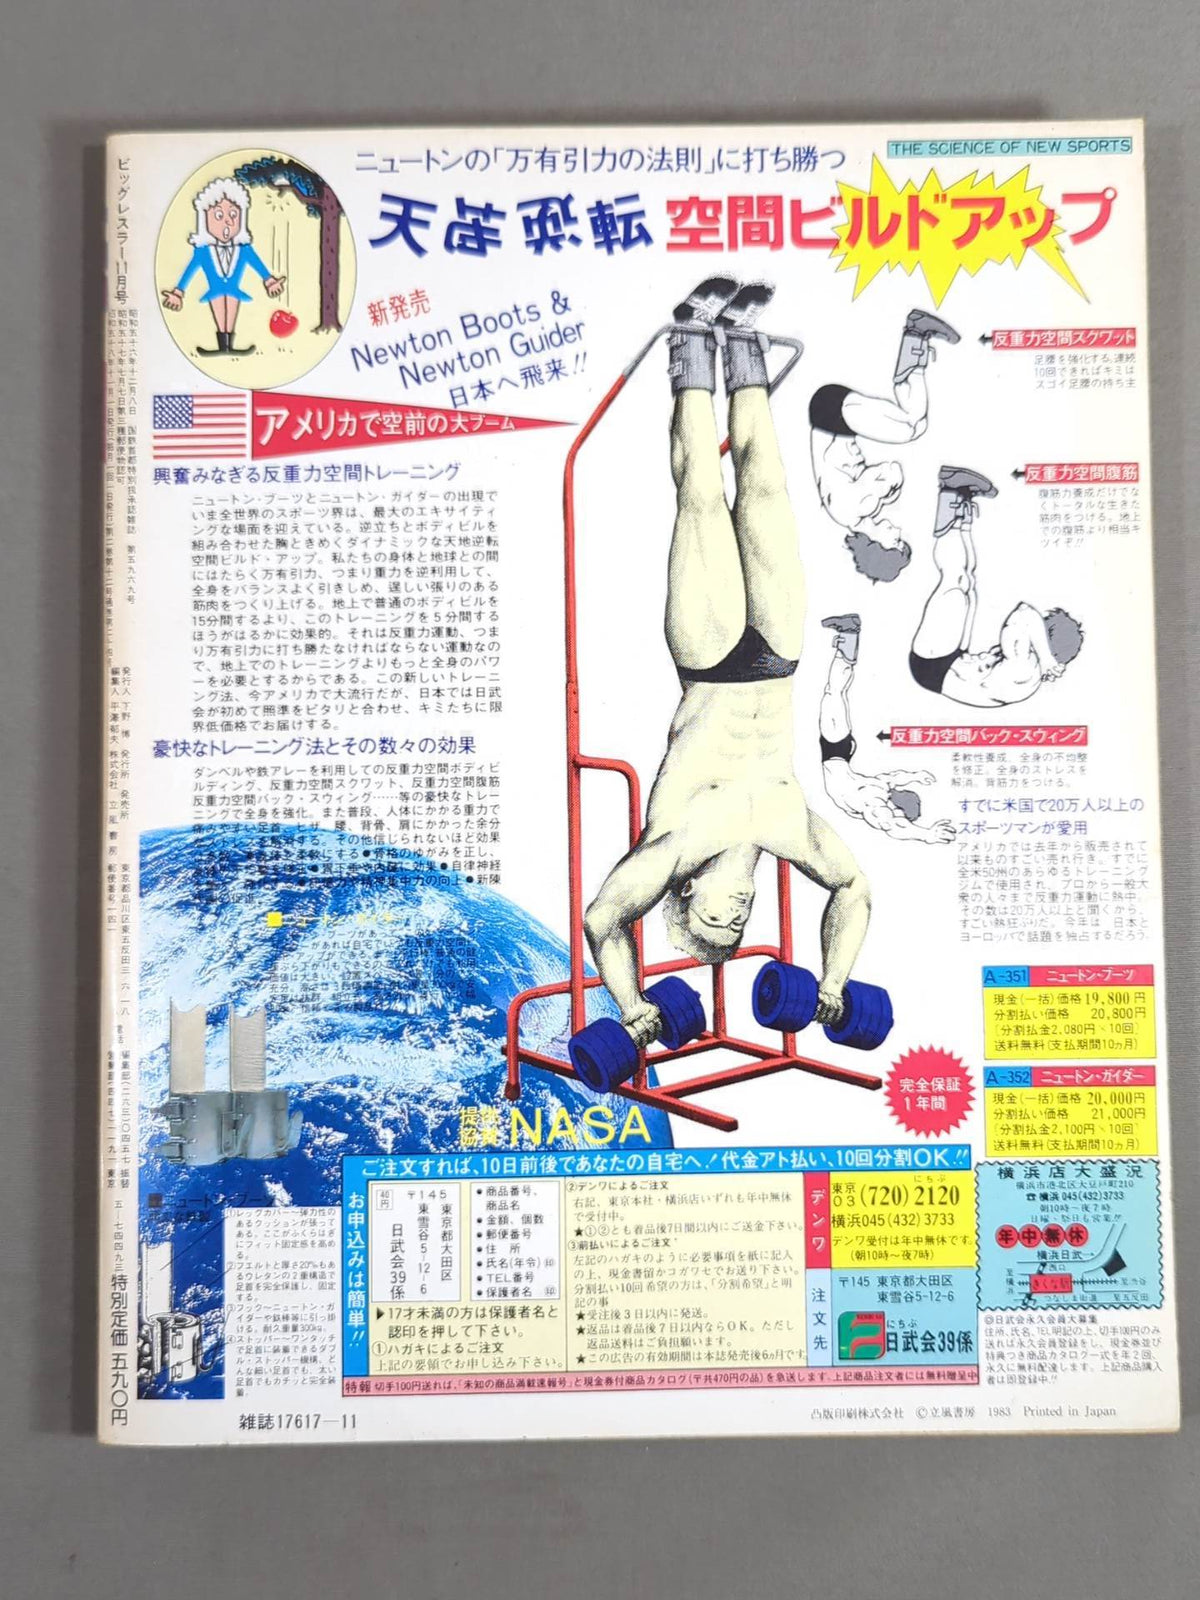 THE SCIENCE OF NEW SPORTS
ニュートンの「万有引力の法則」に打ち勝つ
天地逆転 空間ビルドアップ
新発売
Newton Boots &
Newton Guider
日本へ飛来!!
アメリカで空前の大ブーム
興奮みなぎる反重力空間トレーニング
ニュートン・ブーツとニュートン・ガイダーの出現で
いま全世界のスポーツ界は、最大のエキサイティ
ングな場面を迎えている。逆立ちとボディビルを
組み合わせた胸ときめくダイナミックな天地逆転
空間ビルド・アップ。私たちの身体と地球との間
にはたらく万有引力、つまり重力を逆利用して、
全身をバランスよく引きしめ、逞しい張りのある
筋肉をつくり上げる。地上で普通のボディビルを
15分間するより、このトレーニングを5分間する
ほうがはるかに効果的。それは反重力運動、つま
り万有引力に打ち勝たなければならない運動なの
で、地上でのトレーニングよりもっと全身のパワ
ーを必要とするからである。この新しいトレーニ
ング法、今アメリカで大流行だが、日本では日武
会が初めて照準をピタリと合わせ、キミたちに限
界低価格でお届けする。
豪快なトレーニング法とその数々の効果
ダンベルや鉄アレーを利用しての反重力空間ボディビ
ルディング、反重力空間スクワット、反重力空間腹筋
反重力空間バック・スウィング……等の豪快なトレー
ニングで全身を強化。また普段、人体にかかる重力で
痛みやすい足首、ヒザ、腰、背骨、肩にかかった余分
反重力空間スクワット
足腰を強化する。連続
10回できればキミは
スゴイ足腰の持ち主
反重力空間腹筋
腹筋力養成だけでな
くトータルな生きた
筋肉をつける。地上
での腹筋より相当キ
ツイぞ!!
反重力空間バック・スウィング
柔軟性養成、全身の不均整
を修正。全身のストレスを
解消。背筋力をつける。
すでに米国で20万人以上の
スポーツマンが愛用
アメリカでは去年から販売されて
以来ものすごい売れ行き。すでに
全米50州のあらゆるトレーニング
ジムで使用され、プロから一般大
衆の人々まで反重力運動に熱中。
その数は20万人以上と聞くから、
すごい熱狂ぶりだ。今年は、日本と
ヨーロッパで話題を独占するだろう。
A-351 ニュートン・ブーツ
現金(一括)価格 19,800円
分割払い価格 20,800円
[分割払金2,080円×10回]
送料無料(支払期間10ヵ月)
A-352 ニュートン・ガイダー
現金(一括)価格 20,000円
分割払い価格 21,000円
[分割払金2,100円×10回]
送料無料(支払期間10ヵ月)
完全保証
1年間
NASA
①レッグカバー〜弾力性の
あるクッションが張って
ある。ここがふくらはぎ
にフィット固定感を高め
る。
②フェルトと厚さ20%もあ
るウレタンの2重構造で
足首を完全保護し、固定
する。
③フック〜ニュートン・ガ
イダーや鉄棒等に引っ掛
ける。耐久重量300kg。
④ストッパー〜ワンタッチ
で足首に装着できるダブ
ル・ストッパー機構。ど
んな細い足首でも、太い
足首でもカチッと完全装
着。
ご注文すれば、10日前後であなたの自宅へ!代金アト払い、10回分割OK.!!
お申込みは簡単!!
40円
〒145
東京都大田区
東雪谷5-12-6
日武会39係
●商品番号、
商品名
●金額、個数
●郵便番号
●住 所
●氏名(年令)印
●TEL番号
●保護者名 印
▶17才未満の方は保護者名と
認印を押して下さい。
①ハガキによるご注文
上記の要領でお申し込み下さい。
②デンワによるご注文
右記、東京本社・横浜店いずれも年中無休
で受付中。
★①②とも着品後7日間以内にご送金下さい。
③前払いによるご注文
左記のハガキのように必要事項を紙に記入
の上、現金書留かコガワセでお送り下さい。
分割払い10回希望の方は、「分割希望」と明
記の事
★受注後3日以内に発送。
★返品は着品後7日以内ならOK。ただし
返品送料はご負担願います。
★この広告の有効期間は本誌発売後6ヵ月です。
デンワ
東京03(720)2120
にちぶ
横浜045(432)3733
デンワ受付は年中無休です。
(朝10時〜夜7時)
注文先
〒145 東京都大田区
東雪谷5-12-6
にちぶ
日武会39係
特報 切手100円送れば、「未知の商品満載速報号」と現金券付商品カタログ(〒共470円の品)を急送します。上記商品注文者には無料贈呈中
横浜店大盛況
横浜市港北区大豆戸町210
☎横浜045(432)3733
朝10時〜夜7時
日曜・祭日も営業!!
年中無休
横浜日武
西口
きくな駅
至渋谷
つなしま街道
至五反田
◎日武会永久会員大募集
住所、氏名、TEL明記の上、切手100円のみ
送れば永久会員登録をし、現金券並び
特典つき商品カタログ一式を年2回、
永久に無料配達します。上記商品購入
者は即登録中!!
雑誌17617—11
凸版印刷株式会社 ©立風書房 1983 Printed in Japan
ビッグレスラー11月号
発行人 下野 博 発行所 発売所
編集人 平澤郁夫 株式会社 立風書房
特別定価 五九〇円